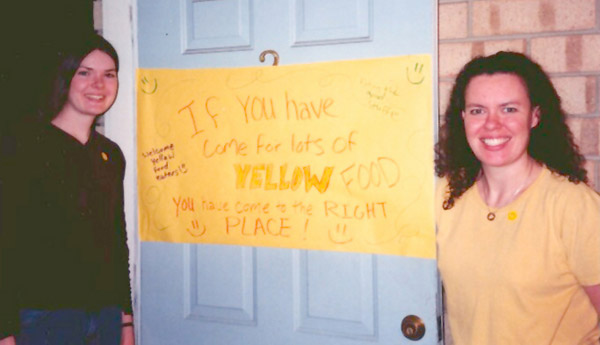 IF YOU HAVE
come for lots of
YELLOW FOOD
YOU have come to the RIGHT
PLACE!
Welcome
Yellow
food
eaters!